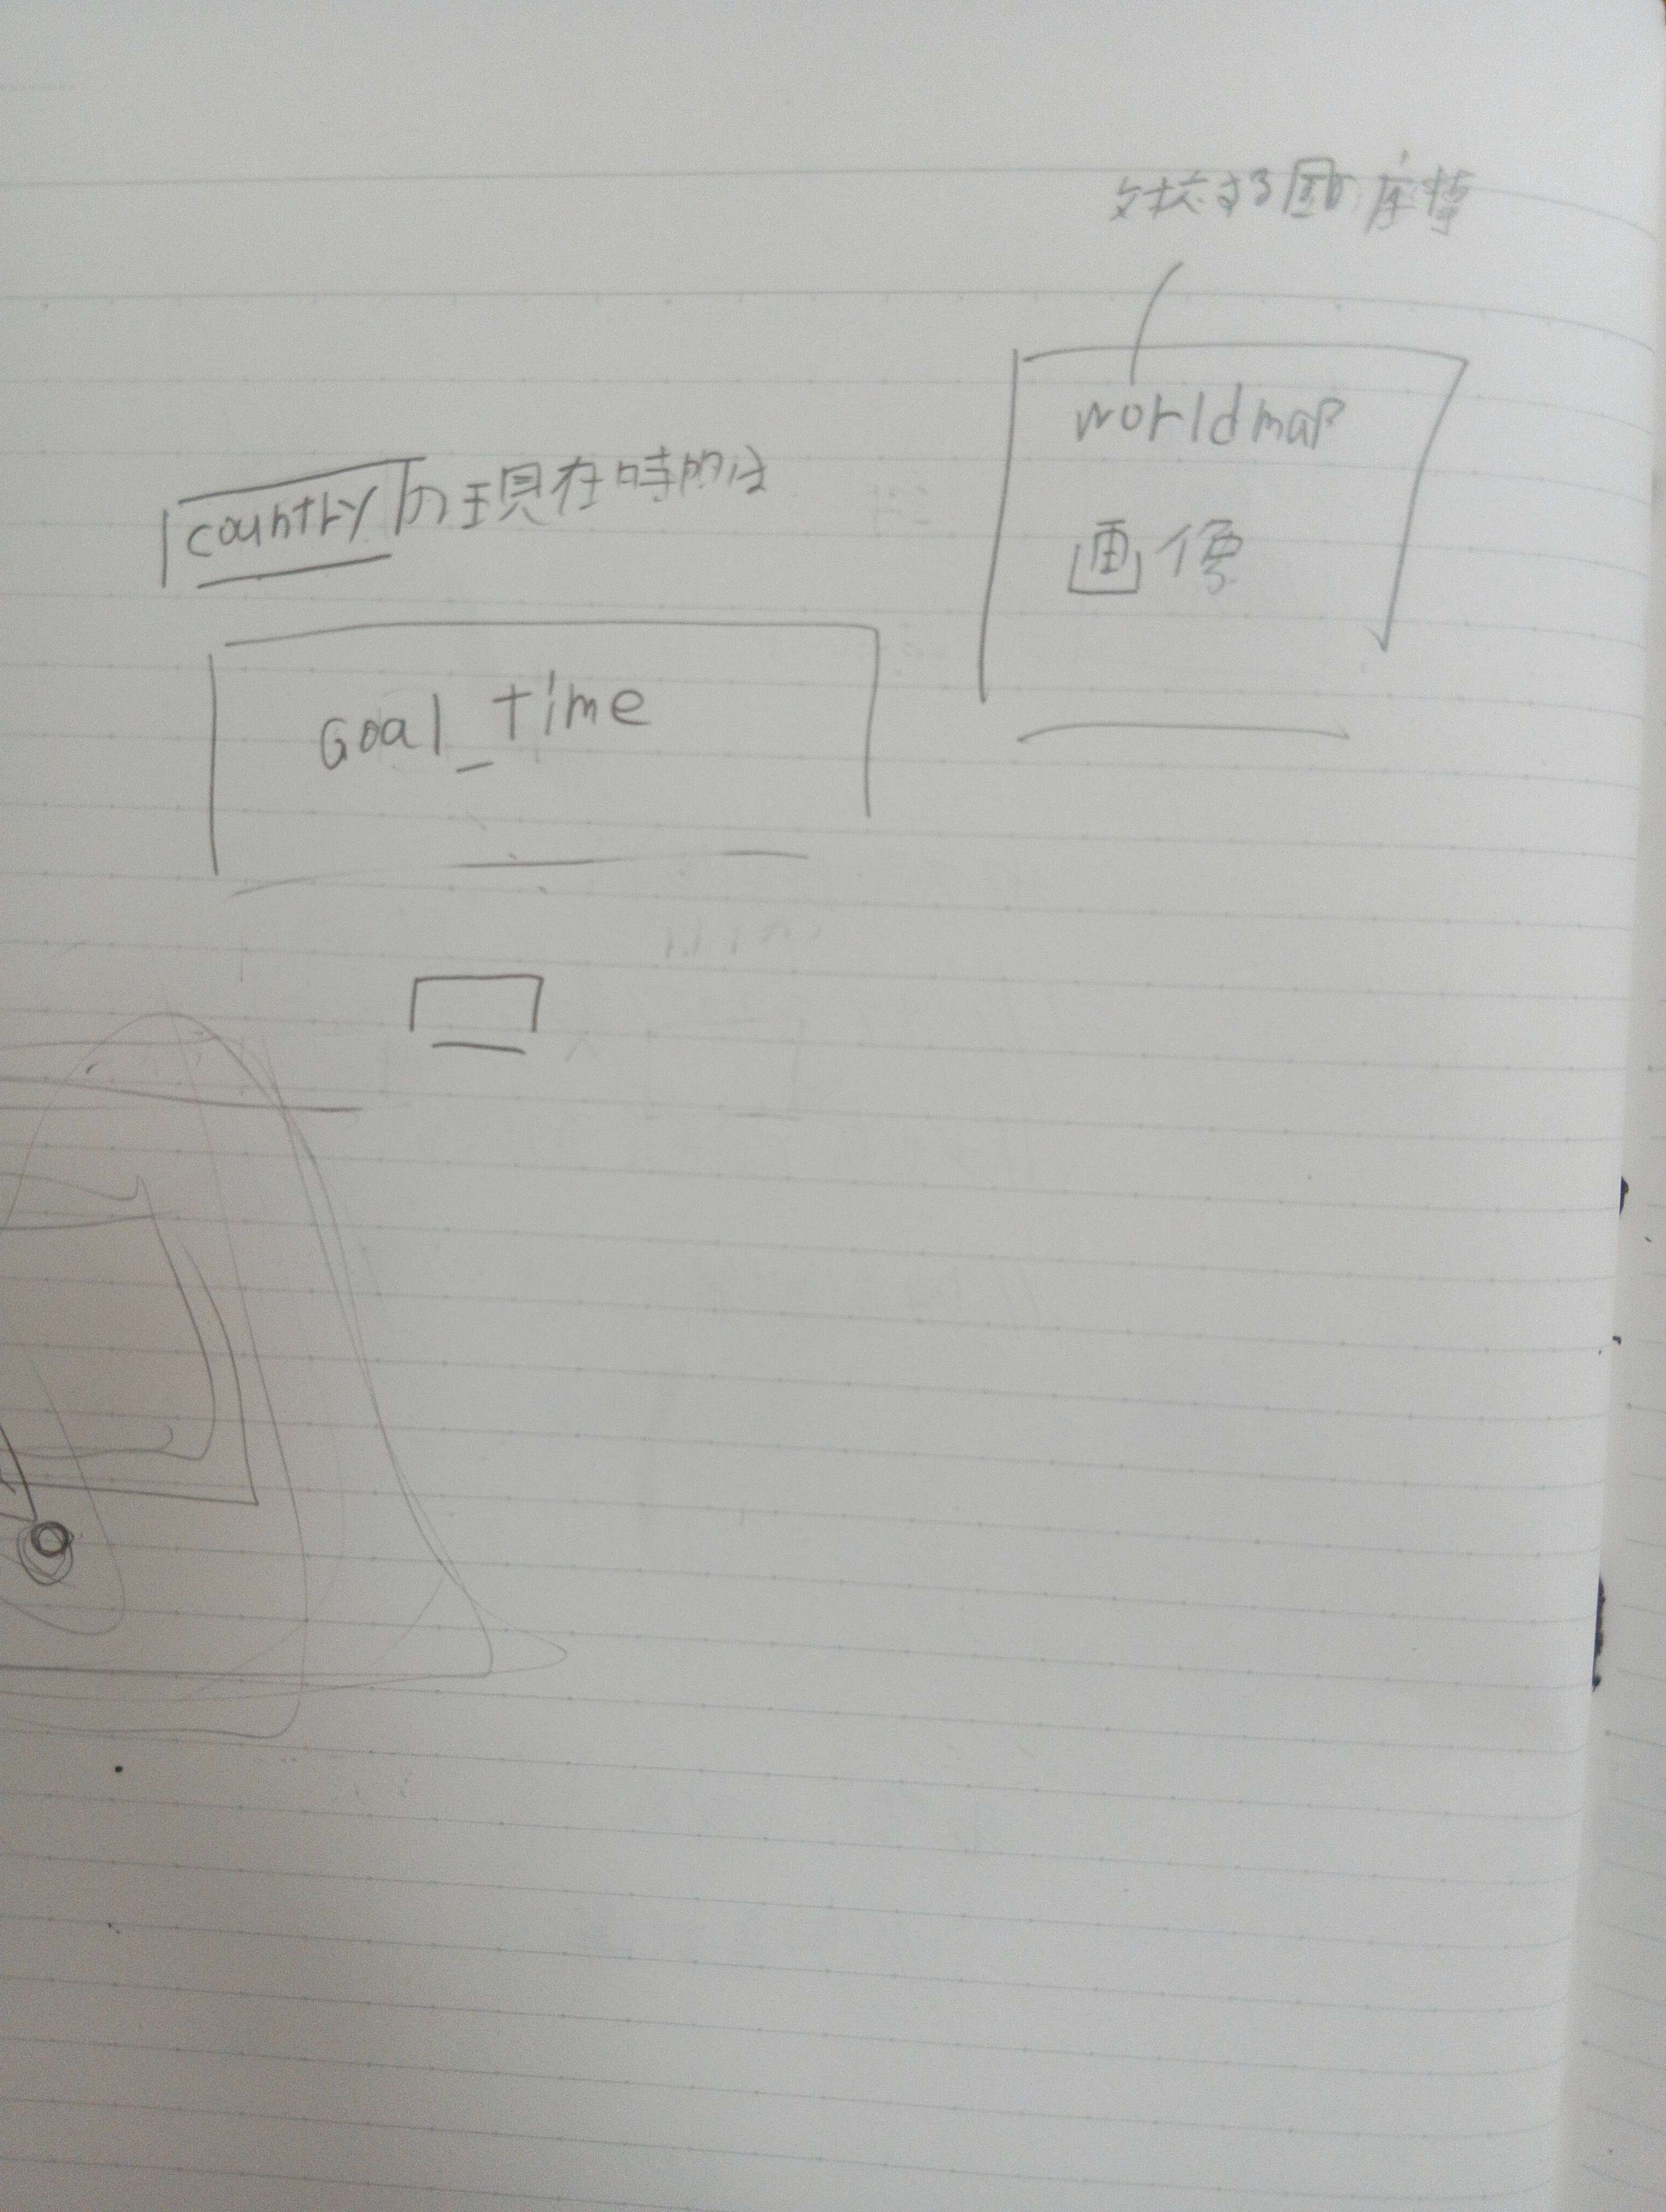 対応する国の座標
worldmap
画像
countryの現在時刻は
Goal_time